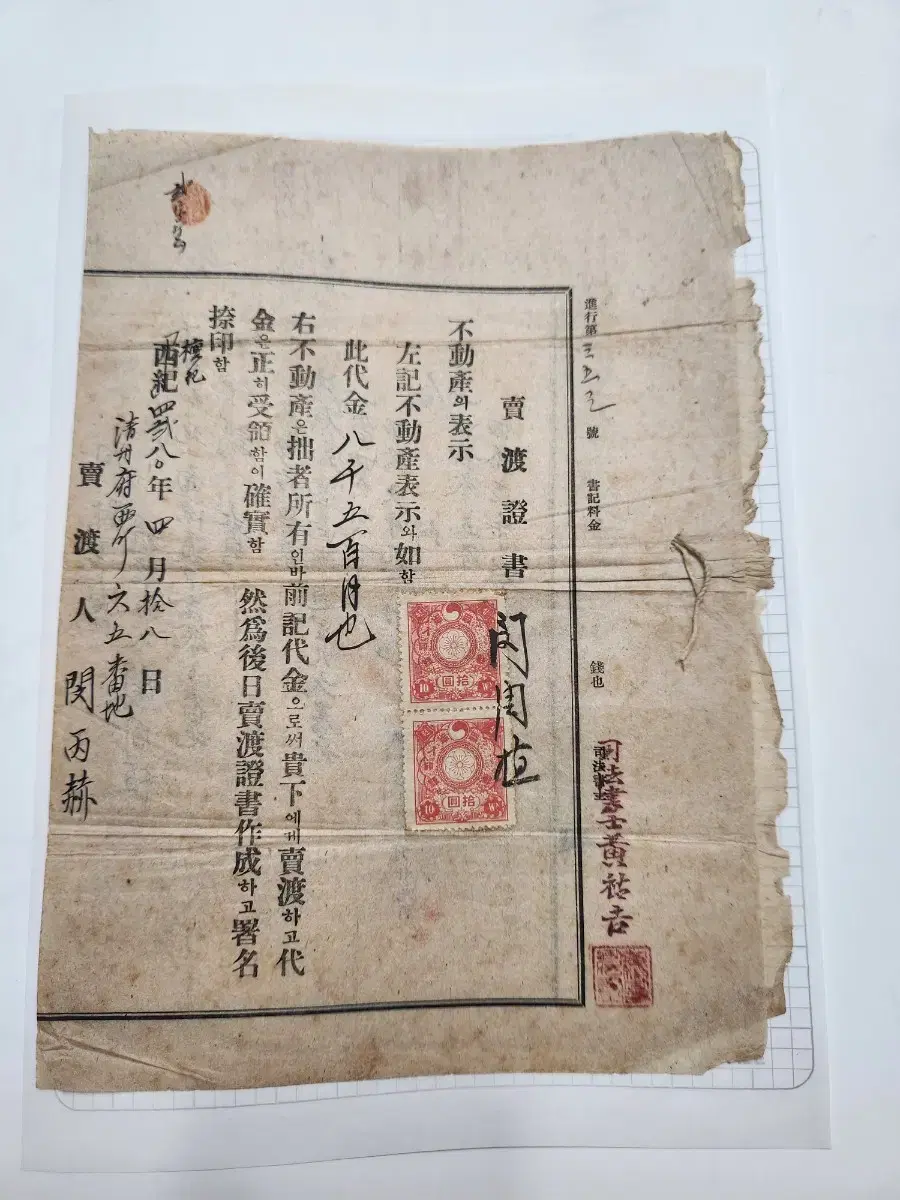 進行第 号 書記料金 錢也
司法書士黃祐吉
賣渡證書
不動產의表示
左記不動產表示와如함
此代金八千五百円也
右不動產은拙者所有인바前記代金으로써貴下에게賣渡하고代
金은正히受領함이確實함 然爲後日賣渡證書作成하고署名
捺印함
檀紀
西紀四弍八〇年四月拾八日
清州府 六五番地
賣渡人 閔丙赫
拾圓
10 W
拾圓
10 W